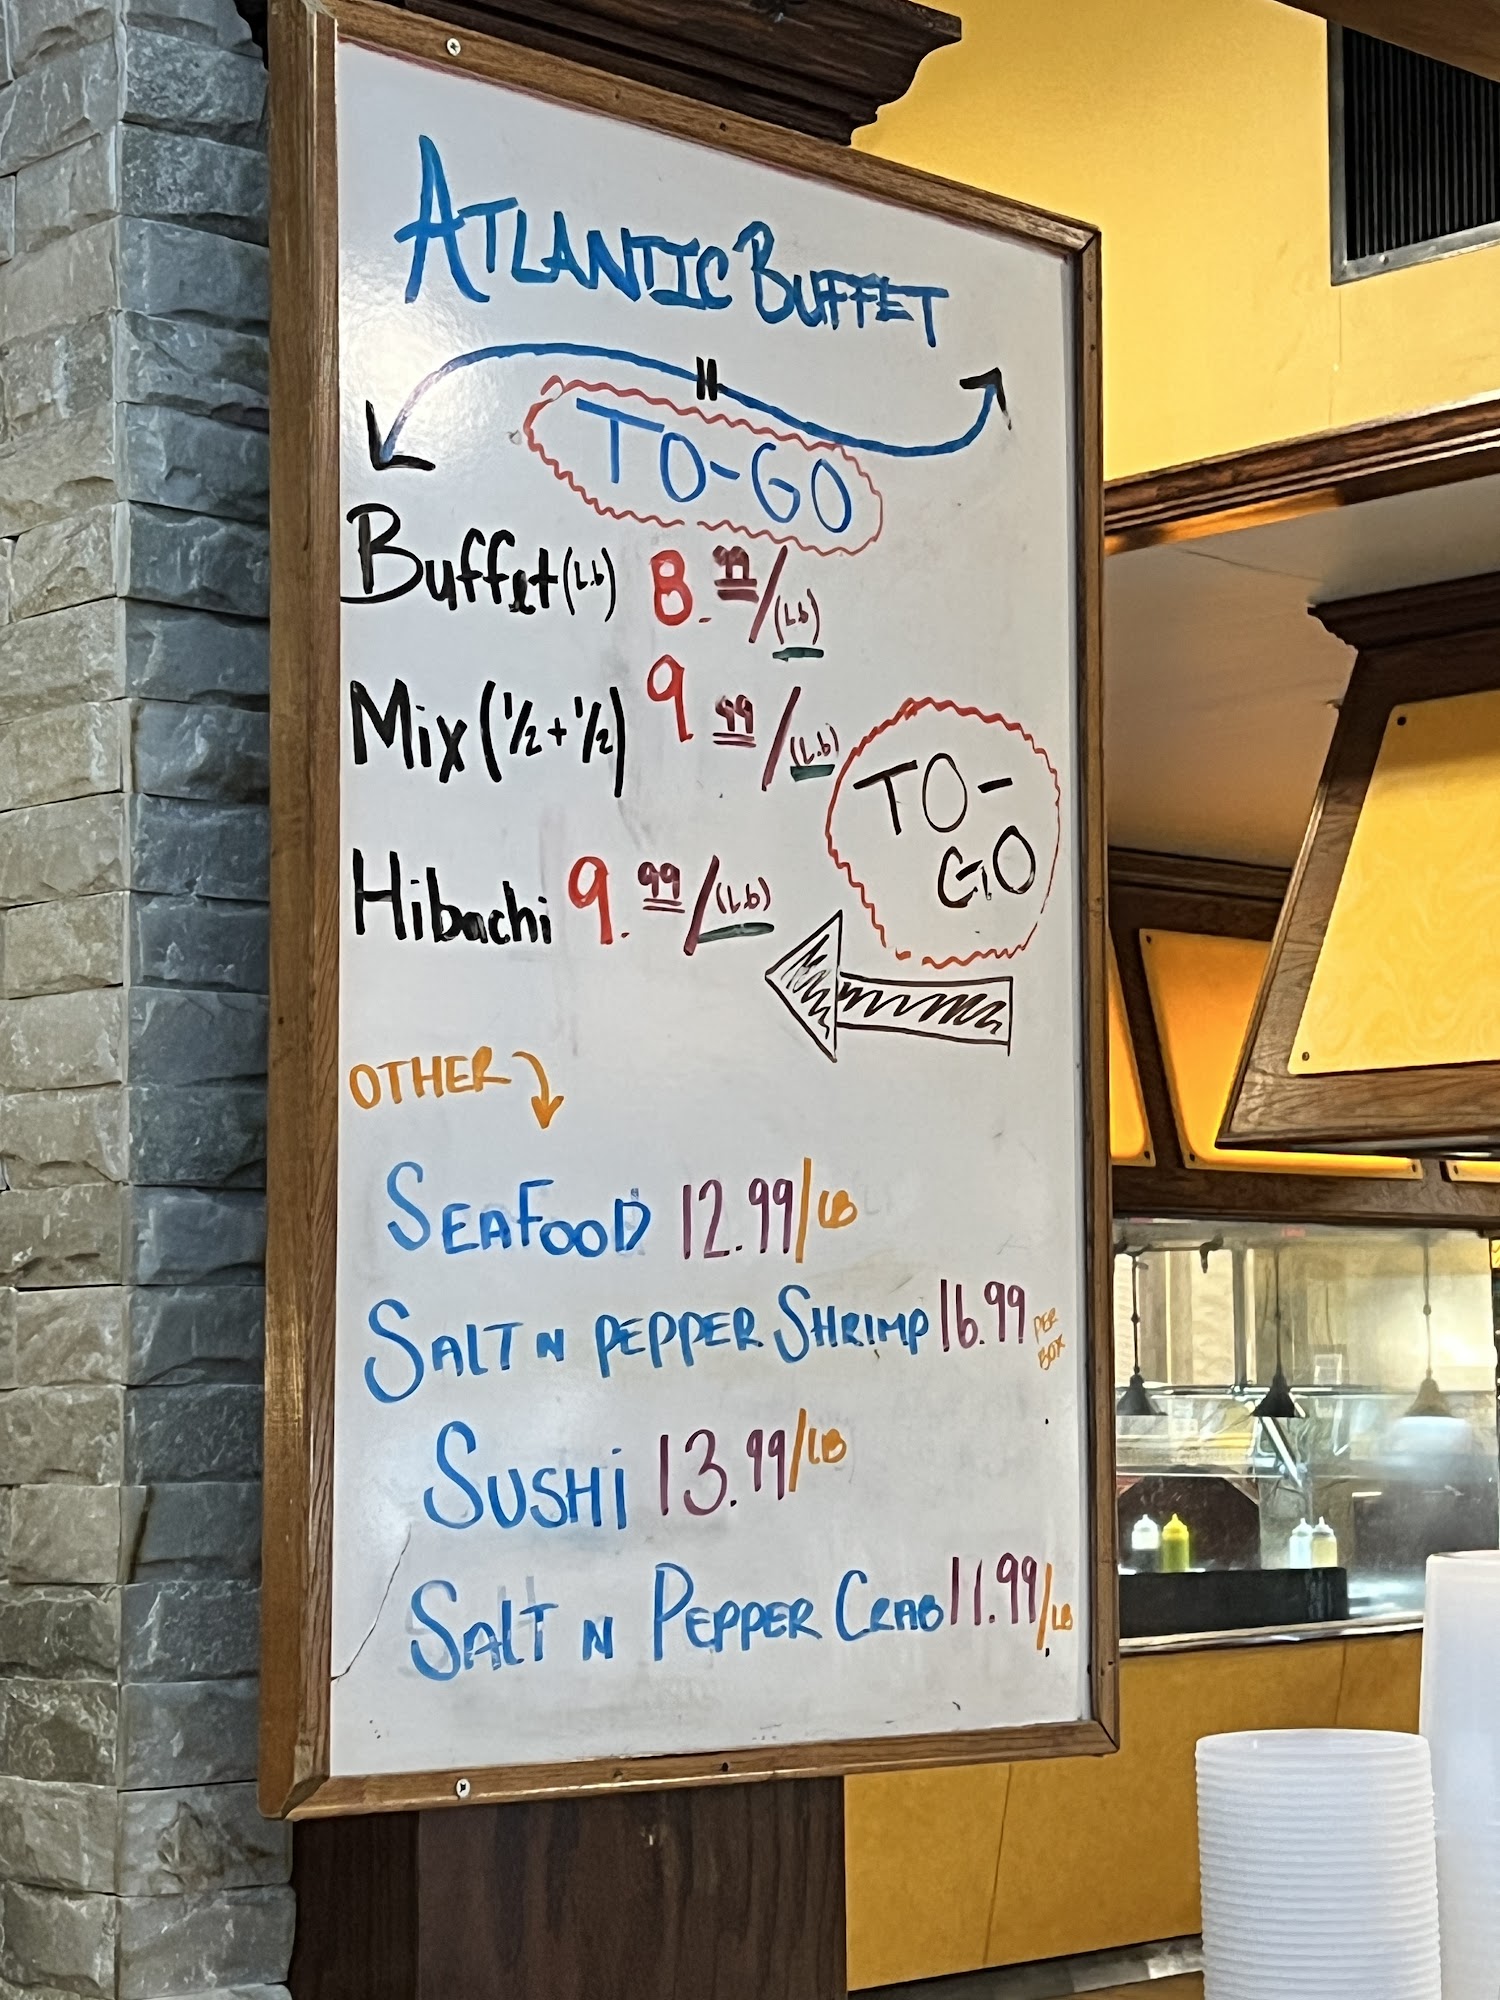 ATLANTIC BUFFET
TO-GO
Buffet (Lb) 8.99/(Lb)
Mix (1/2 + 1/2) 9 99/(Lb)
TO-
GO
Hibachi 9.99/(Lb)
OTHER
SEAFOOD 12.99/LB
SALT N PEPPER SHRIMP 16.99 PER BOX
SUSHI 13.99/LB
SALT N PEPPER CRAB 11.99/LB